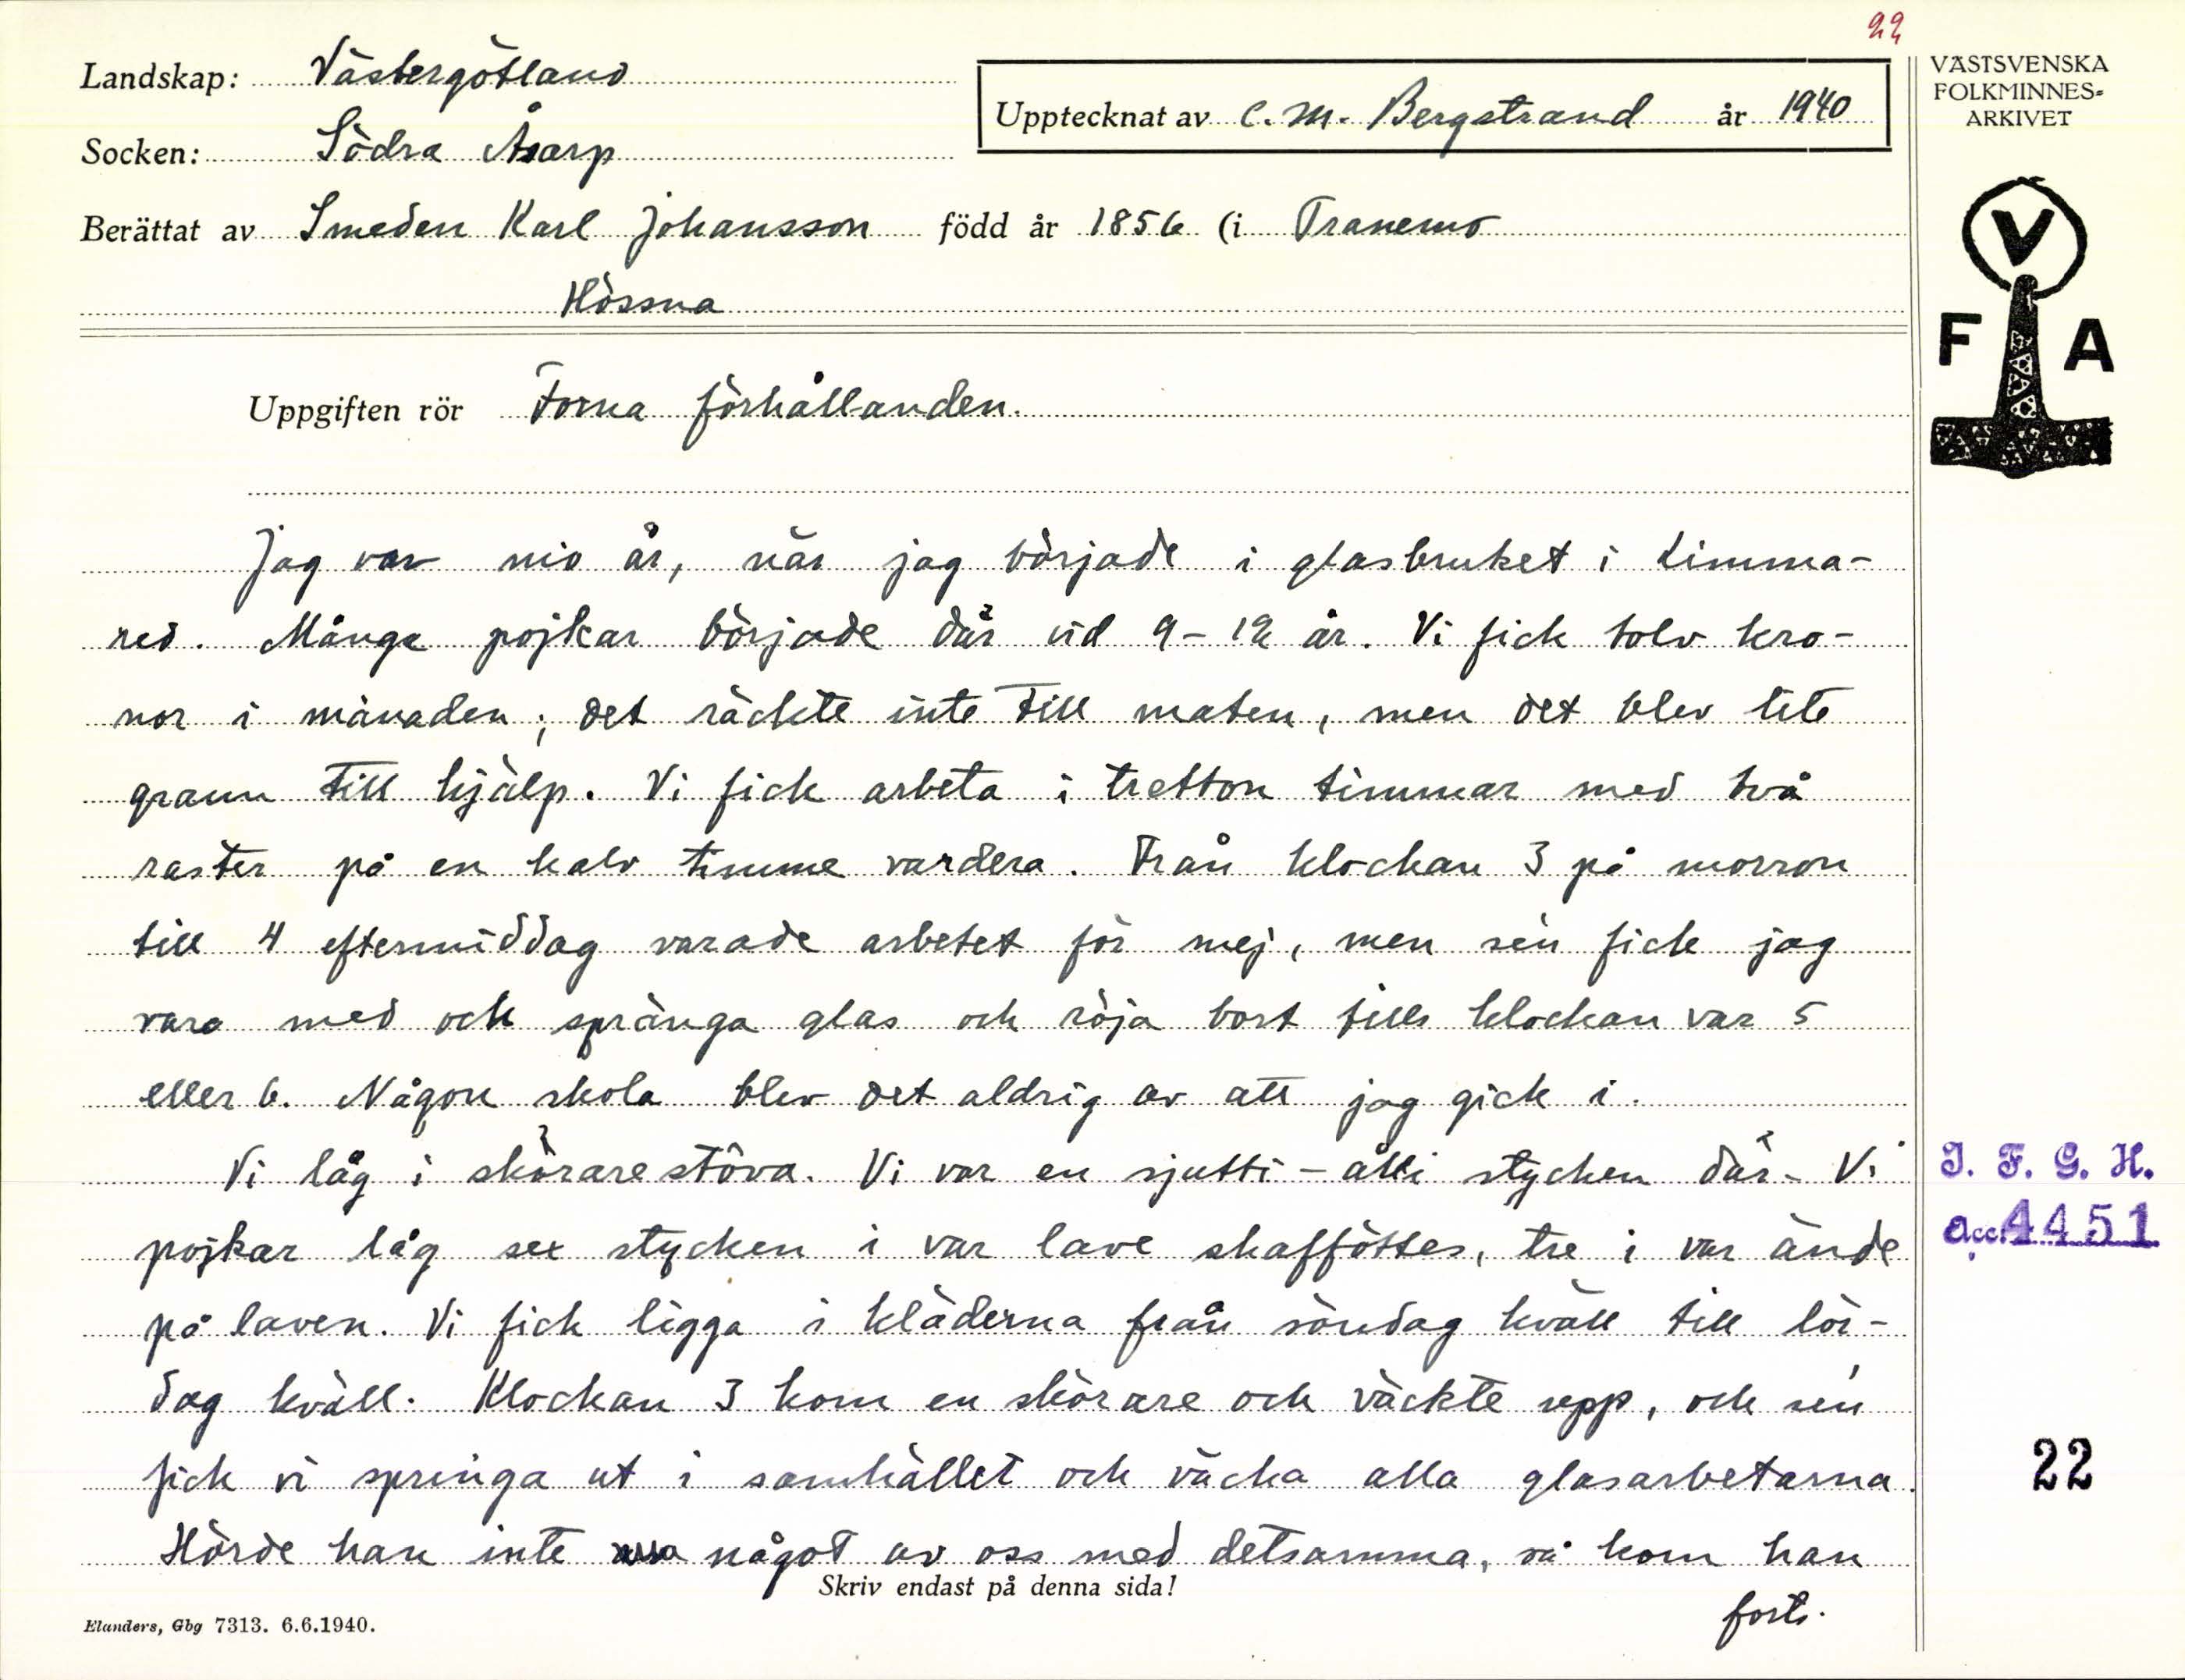 22
Landskap: Västergötland
Socken: Södra Åsarp
Upptecknat av C. M. Bergstrand år 1940
VÄSTSVENSKA
FOLKMINNES-
ARKIVET
Berättat av Smeden Karl Johansson född år 1856 (i Tranemo
Hössna
V
F A
Uppgiften rör Forna förhållanden.
Jag var nio år, när jag började i glasbruket i Limma-
red. Många pojkar började där vid 9-12 år. Vi fick tolv kro-
nor i månaden; det räckte inte till maten, men det blev lite
grann till hjälp. Vi fick arbeta i tretton timmar med två
raster på en halv timme vardera. Från klockan 3 på morron
till 4 eftermiddag varade arbetet för mej, men sén fick jag
vara med och spränga glas och röja bort tills klockan var 5
eller 6. Någon skola blev det aldrig av att jag gick i.
Vi låg i skörarestôva. Vi var en sjutti-åtti stycken där. Vi
pojkar låg sex stycken i var lave skafföttes, tre i var ände
på laven. Vi fick ligga i kläderna från söndag kväll till lör-
dag kväll. Klockan 3 kom en skörare och väckte upp, och sén
fick vi springa ut i samhället och väcka alla glasarbetarna.
Hörde han inte något av oss med detsamma, så kom han
J. F. G. H.
Acc. 4451
22
Skriv endast på denna sida!
forts.
Elanders, Gbg 7313. 6.6.1940.